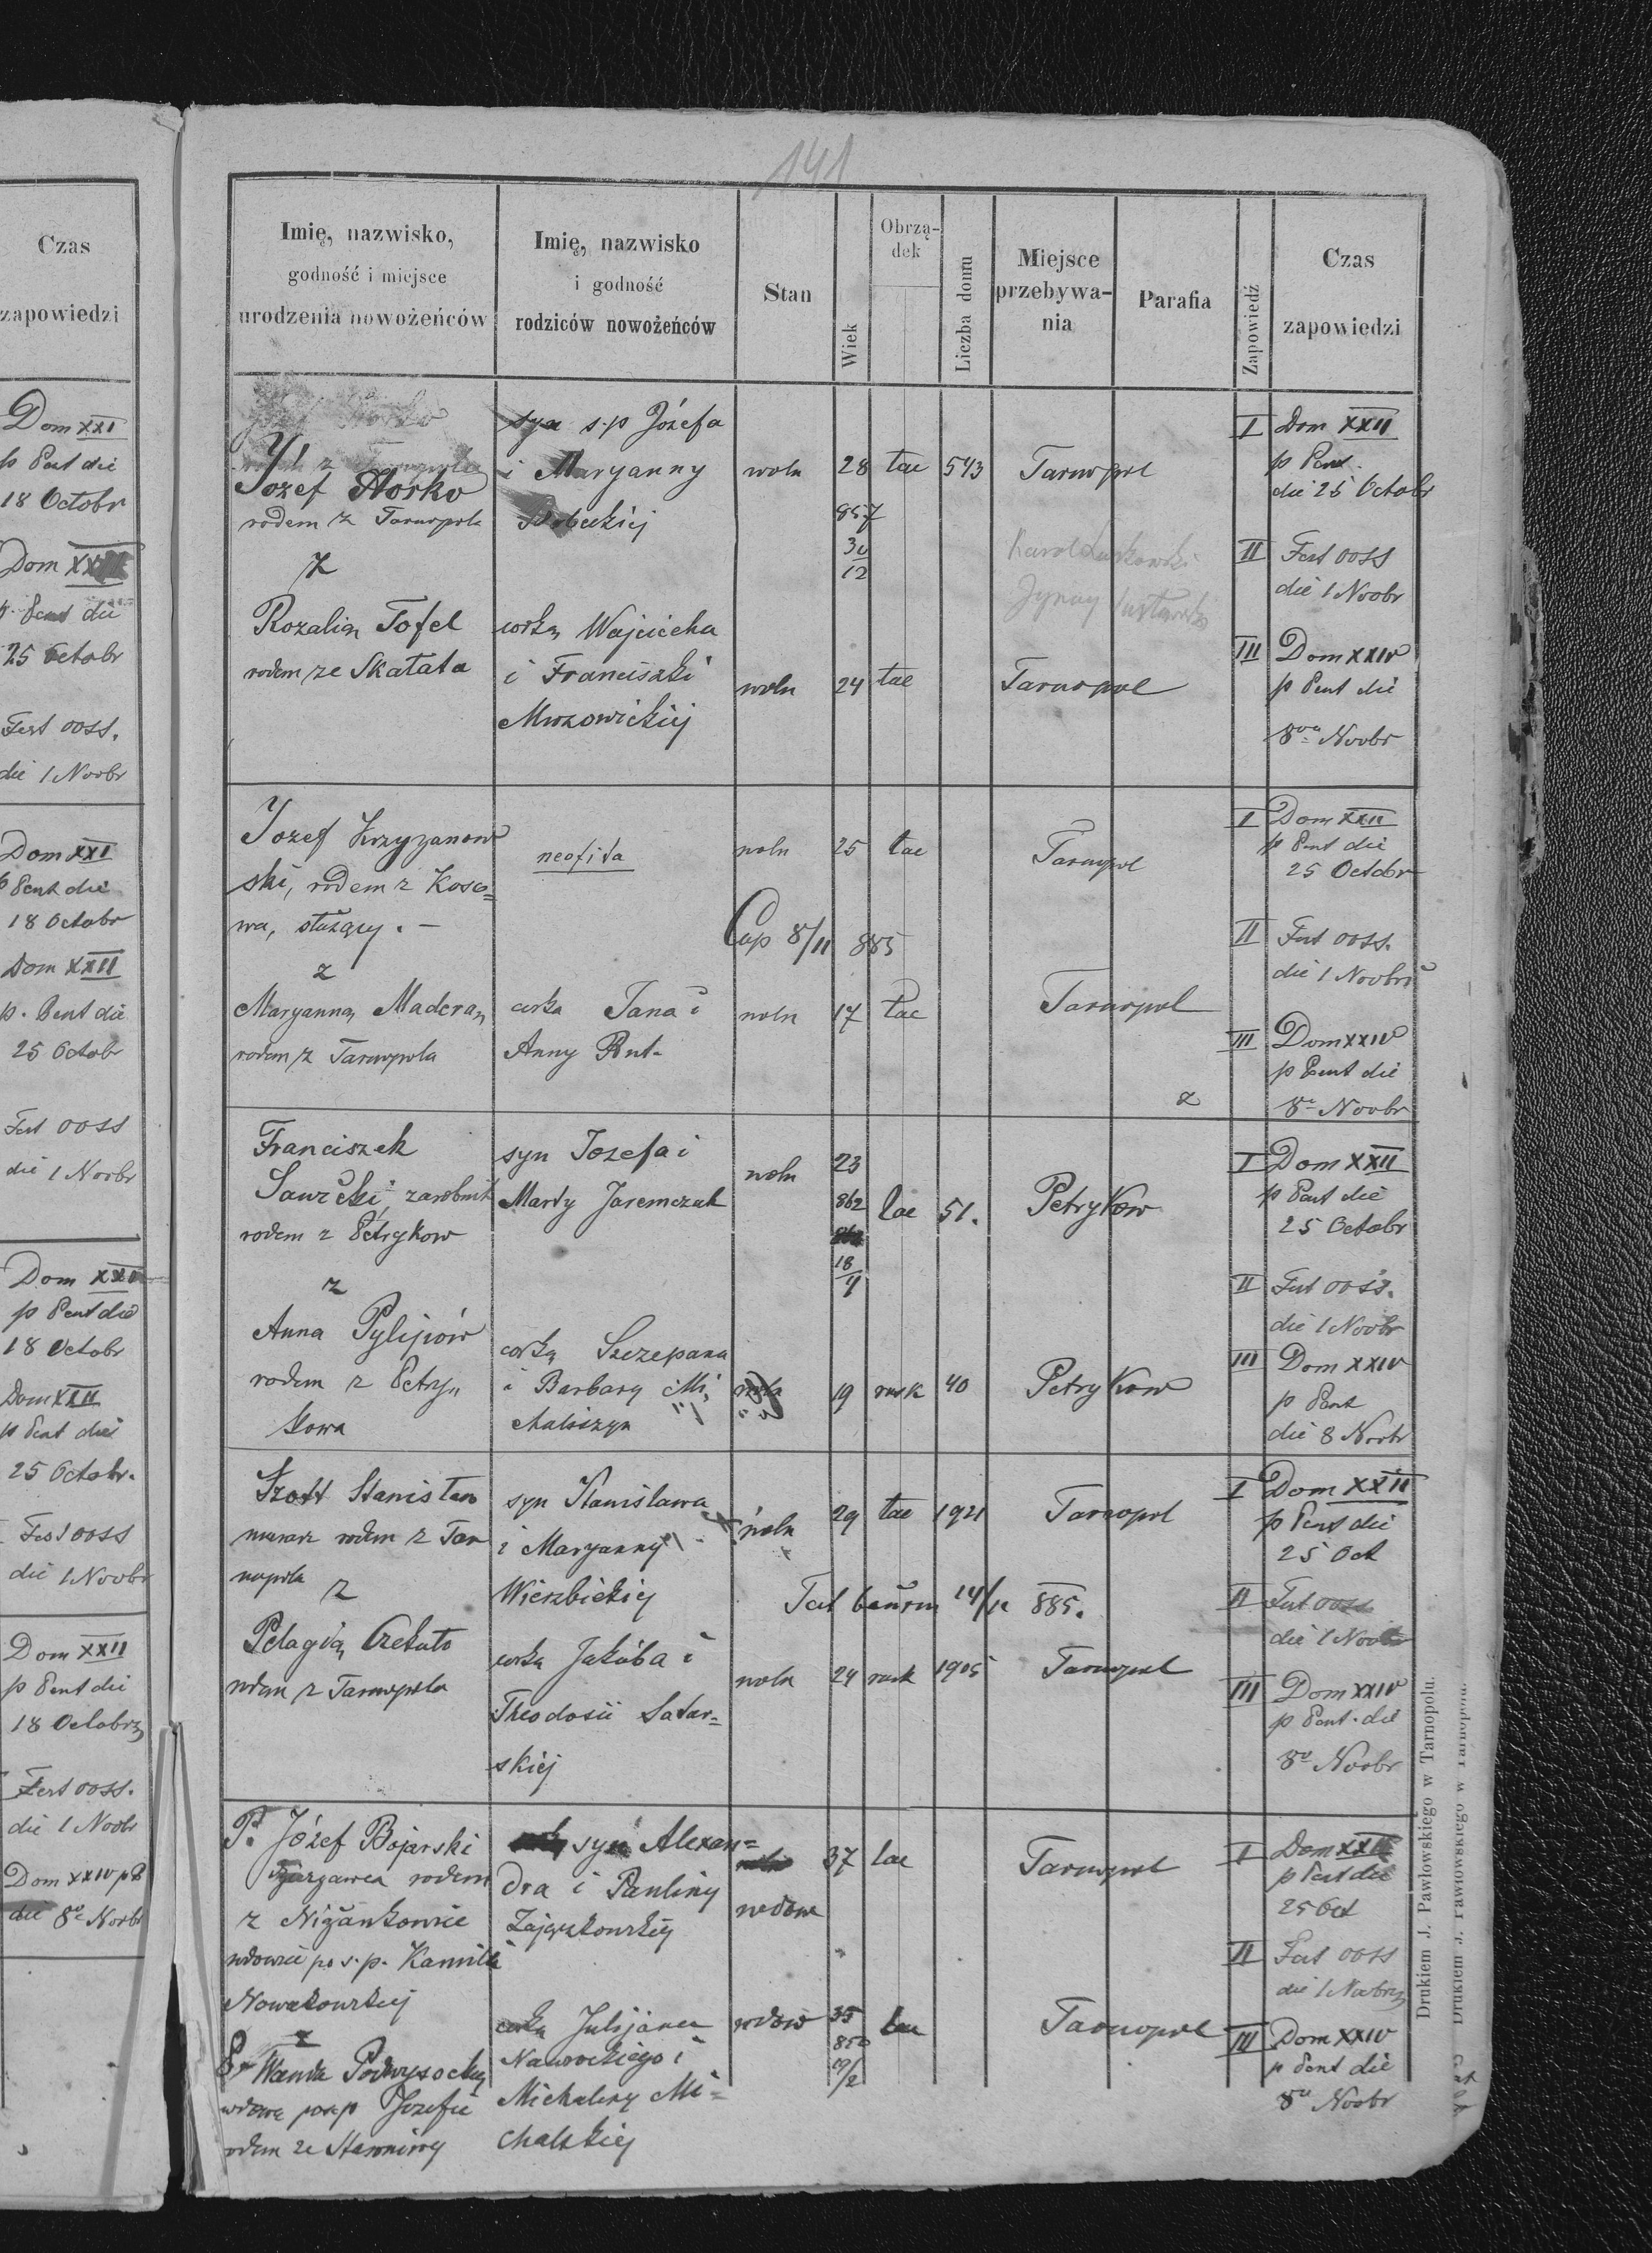 141
Czas
zapowiedzi
Dom XXI
p Pent die
18 Octobr
Dom
p. Pent die
25 Octobr
Fest OOSS.
die 1 Novbr
Dom XXI
p Pent die
18 Octobr
Dom XXII
p. Pent die
25 Octobr
Fest OOSS
die 1 Novbr
Dom
p Pent die
18 Octobr
Dom XXII
p Pent die
25 Octobr.
Fest OOSS
die 1 Novbr
Dom XXII
p Pent die
18 Octobr
Fest OOSS.
die 1 Novbr
Dom XXIV p P
die 8va Novbr
Imię, nazwisko,
godność i miejsce
urodzenia nowożeńców
Imię, nazwisko
i godność
rodziców nowożeńców
Stan
Wiek
Obrzą-
dek
Liczba domu
Miejsce
przebywa-
nia
Parafia
Zapowiedź
Czas
zapowiedzi
Józef Horko
rodem z Tarnopola
z
Rozalia Tofel
rodem ze Skałata
syn s.p Józefa
i Maryanny
córka Wojciecha
i Franciszki
Mrozowickiej
woln 28 łac 543 Tarnopol
857
30
12
Karol
woln 24 łac Tarnopol
I Dom XXII
p Pent.
die 25 Octobr
II Fest OOSS
die 1 Novbr
III Dom XXIV
p Pent die
8va Novbr
Jozef Krzyzanow
ski, rodem z Koso=
wa, służący. —
z
Maryanna Madera
rodem z Tarnopola
neofita
córka Jana i
Anny Rut.
woln 25 łac Tarnopol
Cop 8/11 885
woln 17 łac Tarnopol
I Dom XXII
p Pent die
25 Octobr
II Fest OOSS.
die 1 Novbr
III Dom XXIV
p Pent die
8va Novbr
Franciszek
zarobnik
rodem z Petrykow
z
Anna Pylipiów
rodem z Petry
kowa
syn Jozefa i
Marty Jaremczuk
córka Szczepana
i Barbary Mi
chaliszyn
woln 23 łac 51. Petrykow
862
18
4
19 rusk 40 Petrykow
I Dom XXII
p Pent die
25 Octobr
II Fest OOSS.
die 1 Novbr
III Dom XXIV
p Pent
die 8 Novbr
Szott Stanisław
murarz rodem z Tar
nopola
z
Pelagia
rodem z Tarnopola
syn Stanisława
i Maryanny
Wierzbickiej
córka Jakóba i
Theodosii Satar=
skiej
woln 29 łac 1921 Tarnopol
14/11 885.
woln 24 rusk 1905 Tarnopol
I Dom XXII
p Pent die
25 Oct
II Fest OOSS
die 1 Novbr
III Dom XXIV
p Pent. die
8va Novbr
P. Józef Bojarski
rodem
z Niżankowic
wdowiec po s.p. Kamilli
Nowakowskiej
z
P. Wanda Podwysocka
wdowa po s.p Jozefie
rodem ze
syn Alexan=
dra i Pauliny
Zajączkowskiej
córka Julijana
Nawrockiego i
Michaliny Mi=
chalskiej
37 łac Tarnopol
wdow
wdow 35 łac Tarnopol
850
19/2
I Dom XXII
p Pent die
25 Oct
II Fest OOSS
die 1 Novbr
III Dom XXIV
p Pent die
8va Novbr
Drukiem J. Pawłowskiego w Tarnopolu.
Drukiem J. Pawłowskiego w Tarnopolu.